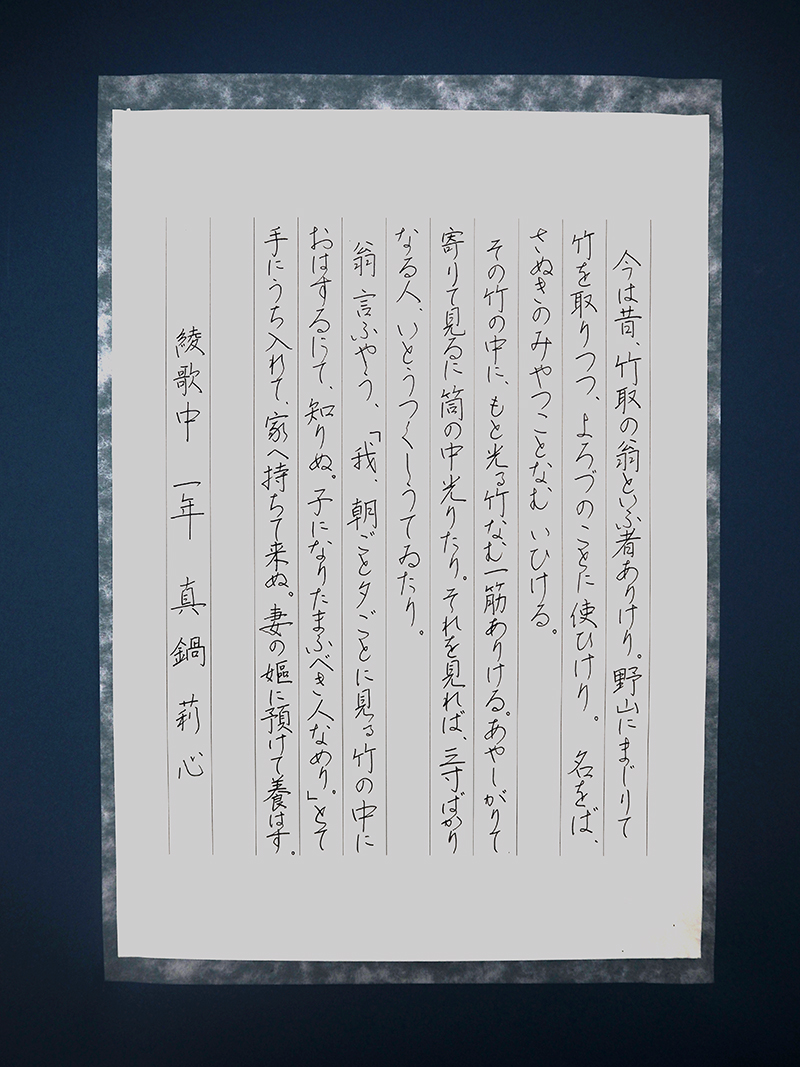 今は昔、竹取の翁といふ者ありけり。野山にまじりて
竹を取りつつ、よろづのことに使ひけり。 名をば、
さぬきのみやつことなむ いひける。
その竹の中に、もと光る竹なむ一筋ありける。あやしがりて
寄りて見るに筒の中光りたり。それを見れば、三寸ばかり
なる人、いとうつくしうてゐたり。
翁言ふやう、「我、朝ごと夕ごとに見る竹の中に
おはするにて、知りぬ。子になりたまふべき人なめり。」とて
手にうち入れて、家へ持ちて来ぬ。妻の嫗に預けて養はす。
綾歌中 一年 真鍋 莉心